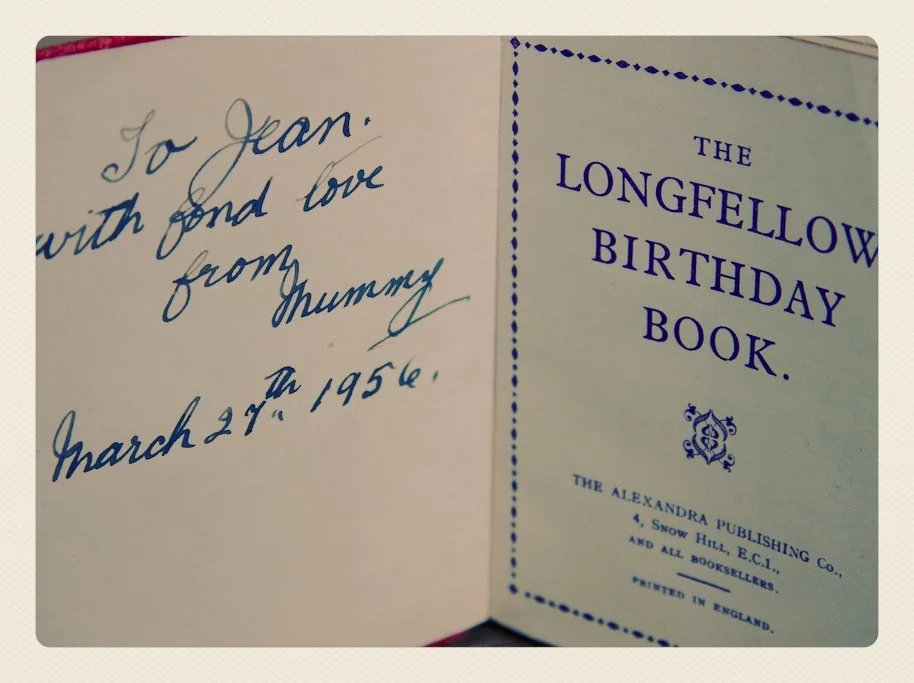 To Jean.
with fond love
from
Mummy
March 27th 1956.
THE
LONGFELLOW
BIRTHDAY
BOOK.
THE ALEXANDRA PUBLISHING Co.,
4, SNOW HILL, E.C.1.,
AND ALL BOOKSELLERS.
PRINTED IN ENGLAND.